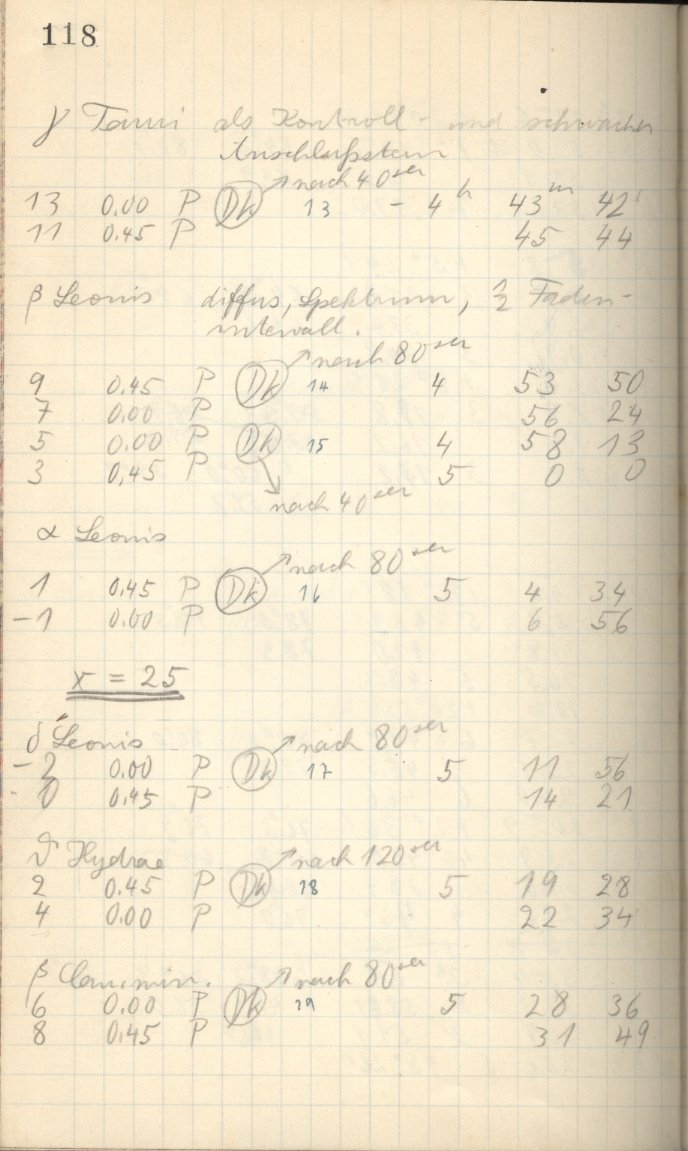 118
γ Tauri als Kontroll- und schwacher
Anschlußstern
nach 40 ser
13 0.00 P Dk 13 - 4h 43m 42s
11 0.45 P 45 44
β Leonis diffus, Spektrum, 1/2 Faden-
intervall.
nach 80 ser
9 0.45 P Dk 14 4 53 50
7 0.00 P 56 24
5 0.00 P Dk 15 4 58 13
3 0,45 P 5 0 0
nach 40 ser
α Leonis
nach 80 ser
1 0.45 P Dk 16 5 4 34
-1 0.00 P 6 56
x = 25
δ Leonis nach 80 ser
-2 0.00 P Dk 17 5 11 56
0 0.45 P 14 21
ϑ Hydrae nach 120 ser
2 0.45 P Dk 18 5 19 28
4 0.00 P 22 34
β Can. min. nach 80 ser
6 0.00 P Dk 19 5 28 36
8 0.45 P 31 49